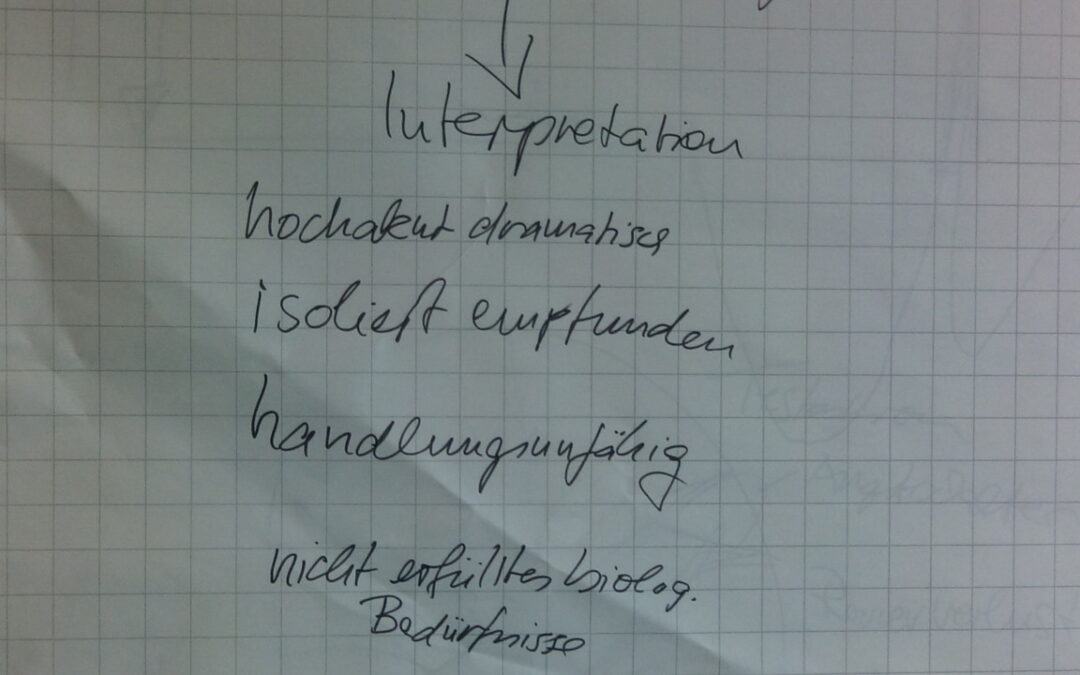 Interpretation
hochakut dramatisch
isoliert empfunden
handlungsunfähig
nicht erfülltes biolog.
Bedürfnisse